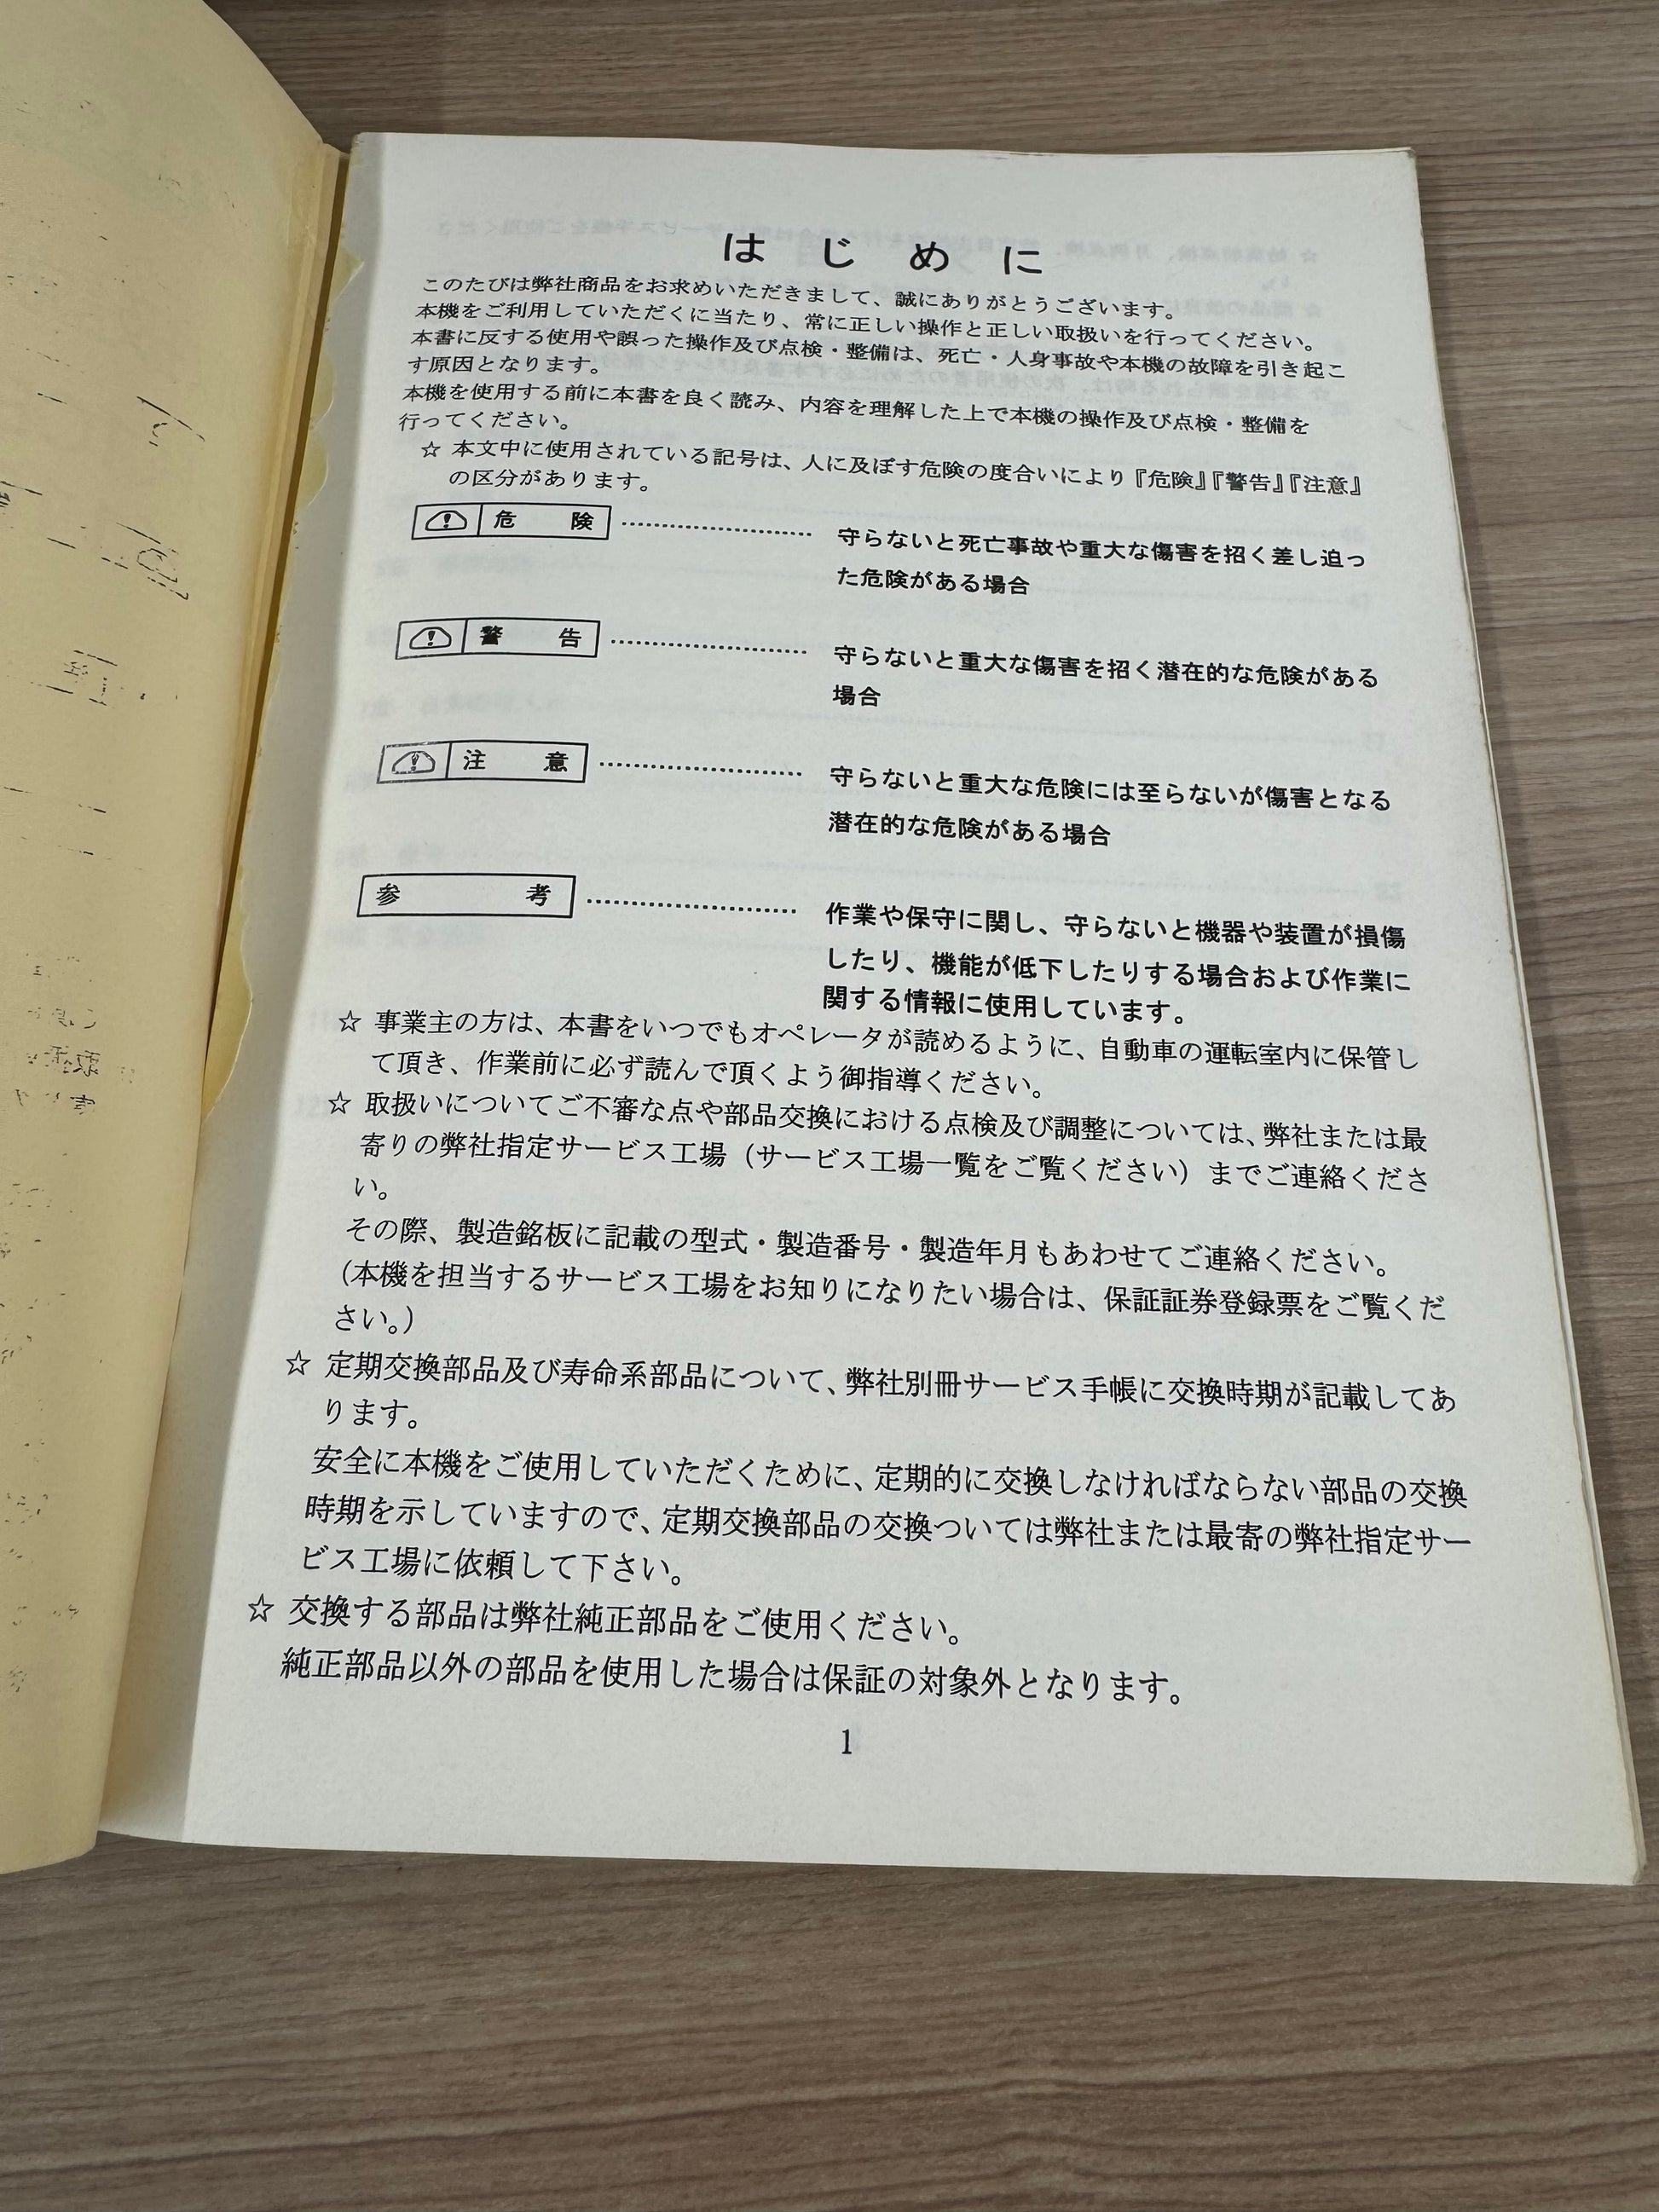 はじめに
このたびは弊社商品をお求めいただきまして、誠にありがとうございます。
本機をご利用していただくに当たり、常に正しい操作と正しい取扱いを行ってください。
本書に反する使用や誤った操作及び点検・整備は、死亡・人身事故や本機の故障を引き起こ
す原因となります。
本機を使用する前に本書を良く読み、内容を理解した上で本機の操作及び点検・整備を
行ってください。
☆ 本文中に使用されている記号は、人に及ぼす危険の度合いにより『危険』『警告』『注意』
の区分があります。
危 険 ………………… 守らないと死亡事故や重大な傷害を招く差し迫っ
た危険がある場合
警 告 ………………… 守らないと重大な傷害を招く潜在的な危険がある
場合
注 意 ………………… 守らないと重大な危険には至らないが傷害となる
潜在的な危険がある場合
参 考 ………………… 作業や保守に関し、守らないと機器や装置が損傷
したり、機能が低下したりする場合および作業に
関する情報に使用しています。
☆ 事業主の方は、本書をいつでもオペレータが読めるように、自動車の運転室内に保管し
て頂き、作業前に必ず読んで頂くよう御指導ください。
☆ 取扱いについてご不審な点や部品交換における点検及び調整については、弊社または最
寄りの弊社指定サービス工場（サービス工場一覧をご覧ください）までご連絡くださ
い。
その際、製造銘板に記載の型式・製造番号・製造年月もあわせてご連絡ください。
（本機を担当するサービス工場をお知りになりたい場合は、保証証券登録票をご覧くだ
さい。）
☆ 定期交換部品及び寿命系部品について、弊社別冊サービス手帳に交換時期が記載してあ
ります。
安全に本機をご使用していただくために、定期的に交換しなければならない部品の交換
時期を示していますので、定期交換部品の交換ついては弊社または最寄の弊社指定サー
ビス工場に依頼して下さい。
☆ 交換する部品は弊社純正部品をご使用ください。
純正部品以外の部品を使用した場合は保証の対象外となります。
1